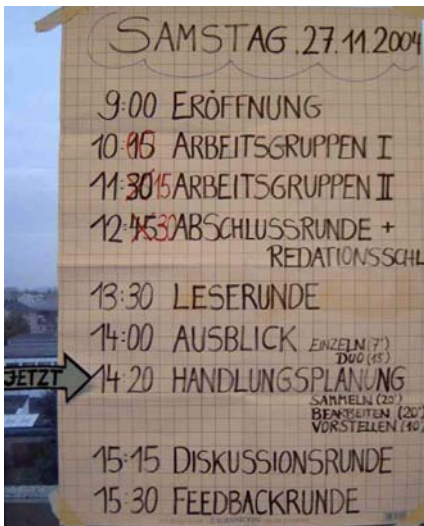 SAMSTAG, 27.11.2004
9:00 ERÖFFNUNG
ARBEITSGRUPPEN I
11:30 15 ARBEITSGRUPPEN II
12:45 30 ABSCHLUSSRUNDE +
REDATIONSSCHL
13:30 LESERUNDE
14:00 AUSBLICK EINZELN (7')
DUO (13')
JETZT 14:20 HANDLUNGSPLANUNG
SAMMELN (20')
BEARBEITEN (20')
VORSTELLEN (10')
15:15 DISKUSSIONSRUNDE
15:30 FEEDBACKRUNDE